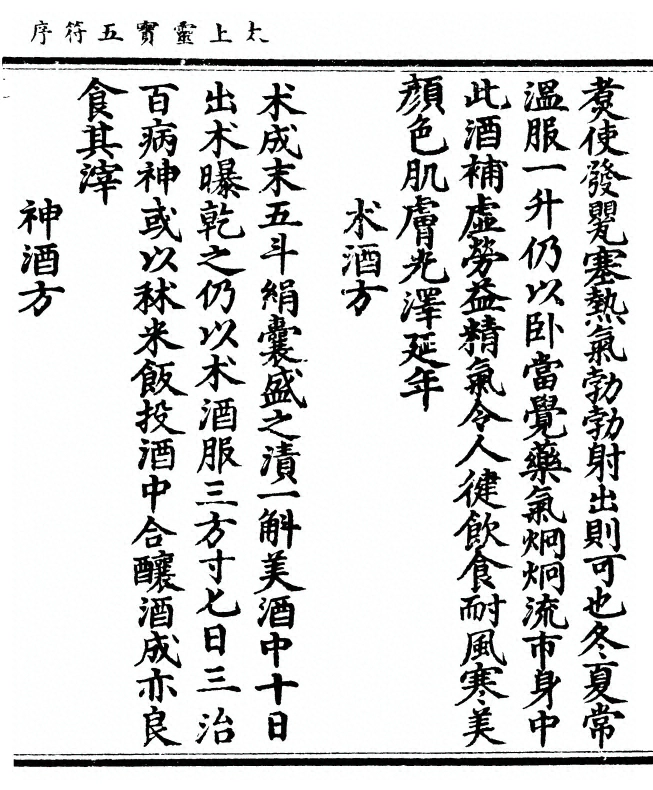 太上靈寶五符序
煑使發甖塞熱氣勃勃射出則可也冬夏常
溫服一升仍以卧當覺藥氣炯炯流帀身中
此酒補虛勞益精氣令人健飲食耐風寒美
顏色肌膚光澤延年
术酒方
术成末五斗絹囊盛之漬一斛美酒中十日
出术曝乾之仍以术酒服三方寸七日三治
百病神或以秫米飯投酒中合釀酒成亦良
食其滓
神酒方